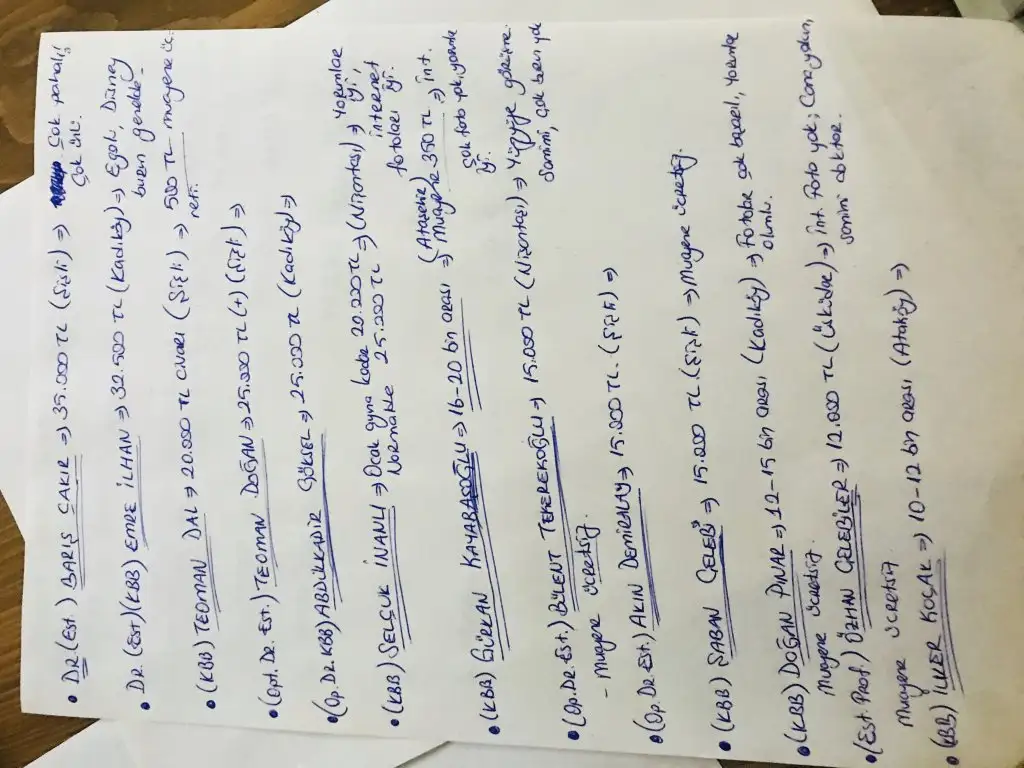 • DR (Est.) BARIŞ ÇAKIR ⇒ 35.000 TL (Şişli) ⇒ Çok pahalı;
Çok ünlü.
• DR. (Est)(KBB) EMRE İLHAN ⇒ 32.500 TL (Kadıköy) ⇒ Egolu, Disney
burun genelde
• (KBB) TEOMAN DAL ⇒ 20.000 TL civarı (Şişli) ⇒ 500 TL muayene üc-
reti.
• (Opt. Dr. Est.) TEOMAN DOĞAN ⇒ 25.000 TL (+) (Şişli) ⇒
• (Op. Dr. KBB) ABDULKADİR GÖKSEL ⇒ 25.000 TL (Kadıköy) ⇒
• (KBB) SELÇUK İNANLI ⇒ Ocak ayına kadar 20.000 TL ⇒ (Nişantaşı) ⇒ Yorumlar
iyi,
Normalde 25.000 TL ⇒ internet
fotoları iyi.
• (KBB) GÜRKAN KAYABAŞOĞLU ⇒ 16-20 bin arası ⇒ (Ataşehir)
Muayene 350 TL ⇒ int.
çok foto yok, yorumlar
iyi.
• (Op. Dr. Est.) BÜLENT TEKEREKOĞLU ⇒ 15.000 TL (Nişantaşı) ⇒ Yüzyüze görüşme.
- Muayene ücretsiz. Samimi, çok burun yok
• (Op. Dr. Est) AKIN DEMİRALAY ⇒ 15.000 TL. (Şişli) ⇒
• (KBB) ŞABAN ÇELEBİ ⇒ 15.000 TL (Şişli) ⇒ Muayene ücretsiz.
• (KBB) DOĞAN PINAR ⇒ 12-15 bin arası (Kadıköy) ⇒ Fotolar çok başarılı, Yorumlar
Muayene ücretsiz. olumlu.
• (Est. Prof.) ÖZHAN ÇELEBİLER ⇒ 12.000 TL (Üsküdar) ⇒ int. Foto yok; Cana yakın,
Muayene ücretsiz. samimi doktor.
• (KBB) İLKER KOÇAK ⇒ 10-12 bin arası (Ataköy) ⇒